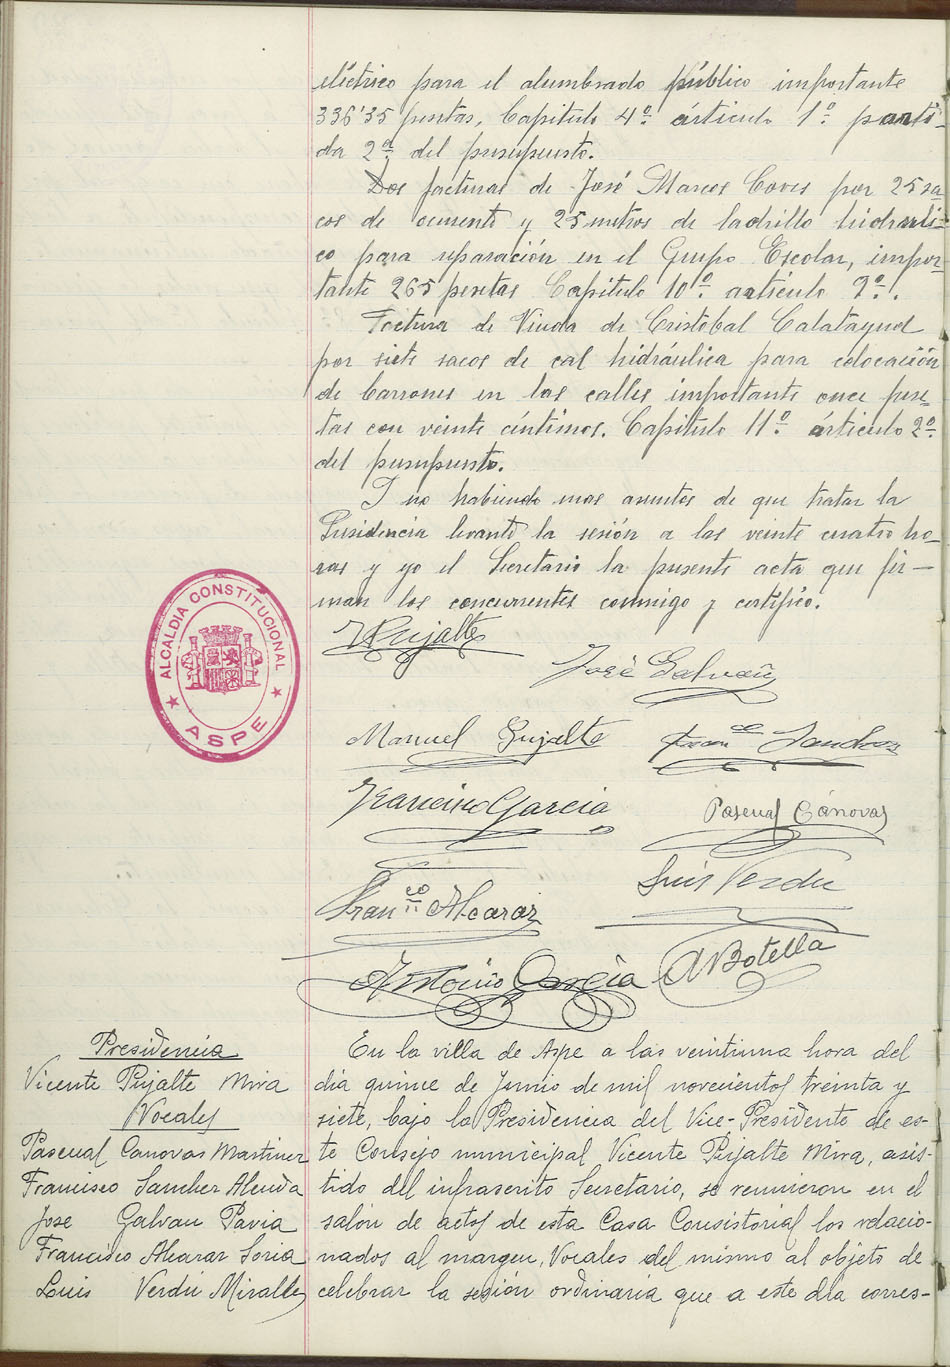 eléctrico para el alumbrado público importante
336'35 pesetas, Capítulo 4º. árticulo 1º. parti-
da 2ª. del presupuesto.
Dos facturas de José Marcos Coves por 25 sa-
cos de cemento y 25 metros de ladrillo hidrauli-
co para reparación en el Grupo Escolar, impor-
tante 265 pesetas Capítulo 10º. artículo 9º..
Factura de Viuda de Cristobal Calatayud
por siete sacos de cal hidráulica para colocación
de barrones en las calles importante once pese-
tas con veinte céntimos. Capítulo 11º. árticulo 2º.
del presupuesto.
Y no habiendo mas asuntos de que tratar la
Presidencia levantó la sesión a las veinte cuatro ho-
ras y yo el Secretario la presente acta que fir-
man los concurrentes conmigo y certifico.
ALCALDIA CONSTITUCIONAL
★ ASPE ★
VPujalte
José Galvañ
Manuel Pujalte
Franco Sanchez
Francisco Garcia
Pascual Cánovas
Luis Verdu
Franco Alcaraz
Antonio Garcia
A Botella
Presidencia
Vicente Pujalte Mira
Vocales
Pascual Canovas Martinez
Francisco Sancher Almida
Jose Galvan Pavia
Francisco Alcarar Soria
Louis Verdú Miralles
En la villa de Aspe a las veintiuna hora del
dia quince de Junio de mil novecientos treinta y
siete, bajo la Presidencia del Vice-Presidente de es-
te Consejo municipal Vicente Pujalte Mira, asis-
tido del infrascrito Secretario, se reunieron en el
salón de actos de esta Casa Consistorial los relacio-
nados al margen, Vocales del mismo al objeto de
celebrar la sesión ordinaria que a este día corres-